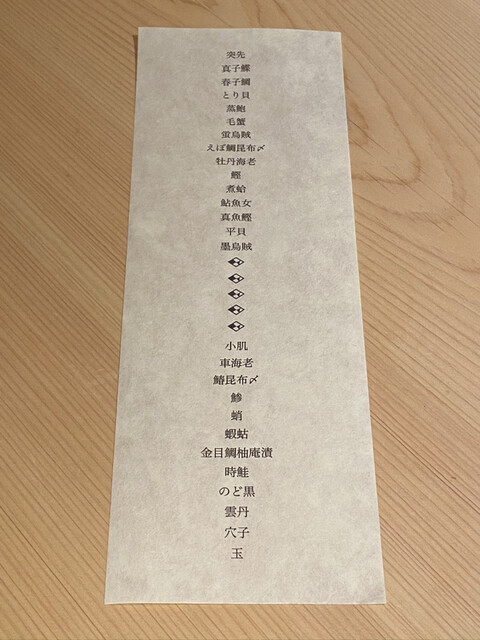 突先
真子鰈
春子鯛
とり貝
蒸鮑
毛蟹
蛍烏賊
えぼ鯛昆布〆
牡丹海老
鰹
煮蛤
鮎魚女
真魚鰹
平貝
墨烏賊
小肌
車海老
鰆昆布〆
鰺
蛸
蝦蛄
金目鯛柚庵漬
時鮭
のど黒
雲丹
穴子
玉